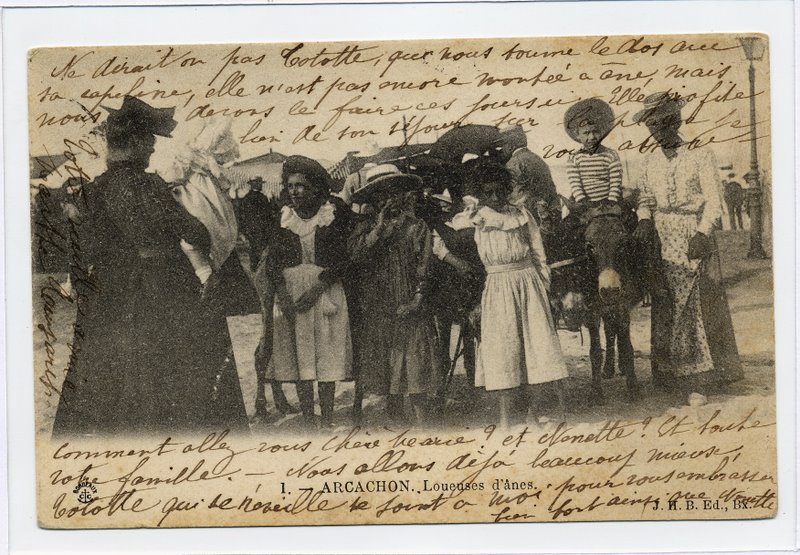 Ne dirait on pas Tototte, que nous tourne le dos avec
sa capeline, elle n'est pas encore montée à âne, mais
nous devons le faire ces jours ci. Elle profite
bien de son séjour
Tototte
Comment allez vous chère Marie ? et Nénette ? Et toute
votre famille. — Nous allons déjà beaucoup mieux,
Tototte qui se réveille se joint à moi pour vous embrasser
bien fort ainsi que
1. — ARCACHON. Loueuses d'ânes.
BORDEAUX
J. H. B. Ed., Bx.